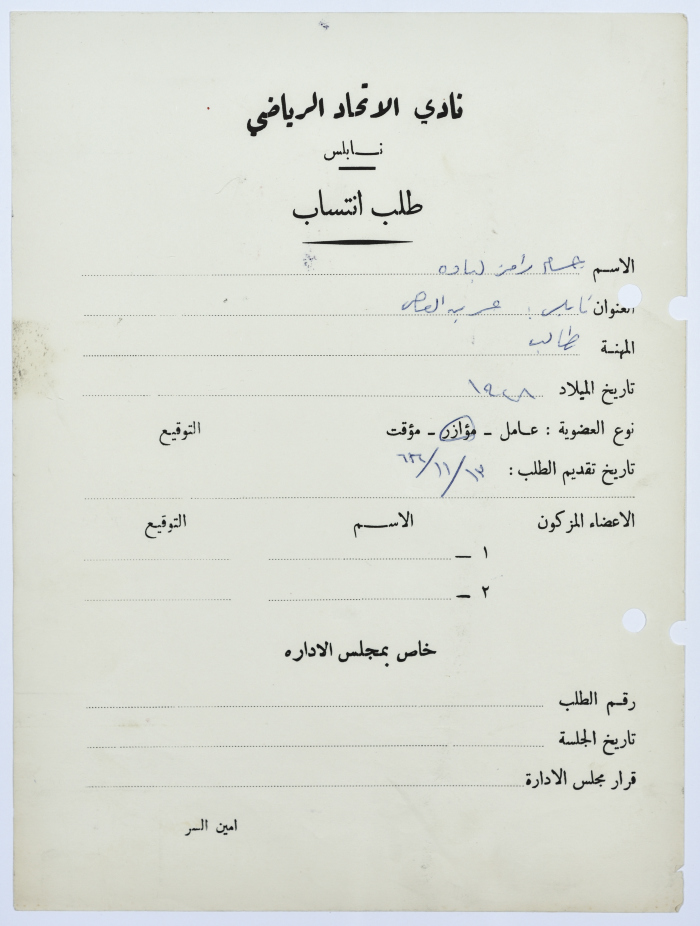 نادي الاتحاد الرياضي
نابلس
طلب انتساب
الاسم حسام رامز لباده
العنوان نابلس
المهنة طالب
تاريخ الميلاد
نوع العضوية : عامل - مؤازر - مؤقت التوقيع
تاريخ تقديم الطلب : ١٣/١١/
الاعضاء المزكون الاسم التوقيع
١ -
٢ -
خاص بمجلس الاداره
رقم الطلب
تاريخ الجلسة
قرار مجلس الادارة
امين السر